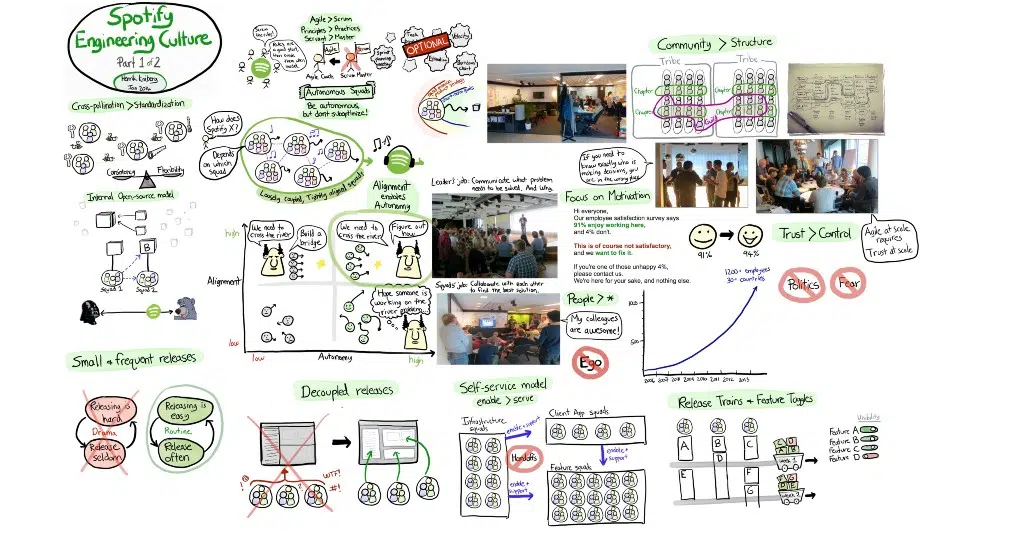 Spotify
Engineering Culture
Part 1 of 2
Henrik Kniberg
Jan 2014
Agile > Scrum
Principles > Practices
Servant > Master
Agile
Scrum
Agile Coach
Scrum Master
OPTIONAL
Velocity
Autonomous Squads
Be autonomous,
but don't suboptimize!
Community > Structure
Tribe
Tribe
Chapter
Chapter
Chapter
Cross-pollination > Standardization
Consistency
Flexibility
How does
Spotify X?
Depends
on which
squad
Loosely coupled, Tightly aligned squads
Alignment
enables
Autonomy
Internal Open-source model
B
Squad 1
Squad 2
high
Alignment
low
low
Autonomy
high
We need to
cross the river
Build a
bridge
We need to
cross the river
Figure out
how
Hope someone is
working on the
river problem...
Leader's job: Communicate what problem
needs to be solved. And why.
Squads' job: Collaborate with each other
to find the best solution.
If you need to
know exactly who is
making decisions, you
are in the wrong place
Focus on Motivation
Hi everyone,
Our employee satisfaction survey says
91% enjoy working here,
and 4% don't.
This is of course not satisfactory,
and we want to fix it.
If you're one of those unhappy 4%,
please contact us.
We're here for your sake, and nothing else.
91%
94%
Trust > Control
Agile at scale
requires
Trust at scale
Politics
Fear
People > *
My colleagues
are awesome!
Ego
1200+ employees
30+ countries
2006 2007 2008 2009 2010 2011 2012 2013
Small & frequent releases
Releasing is
hard
Drama
Release
seldom
Releasing is
easy
Routine
Release
often
Decoupled releases
WTF?
#!
Self-service model
enable > serve
Infrastructure
squads
enable + support
Client App squads
Handoffs
enable +
support
enable +
support
Feature squads
Release Trains & Feature Toggles
A
B
C
D
E
F
G
C D
A B
Week 1
F G
D E
Week 2
Visibility
Feature A
Feature B
Feature C
Feature D